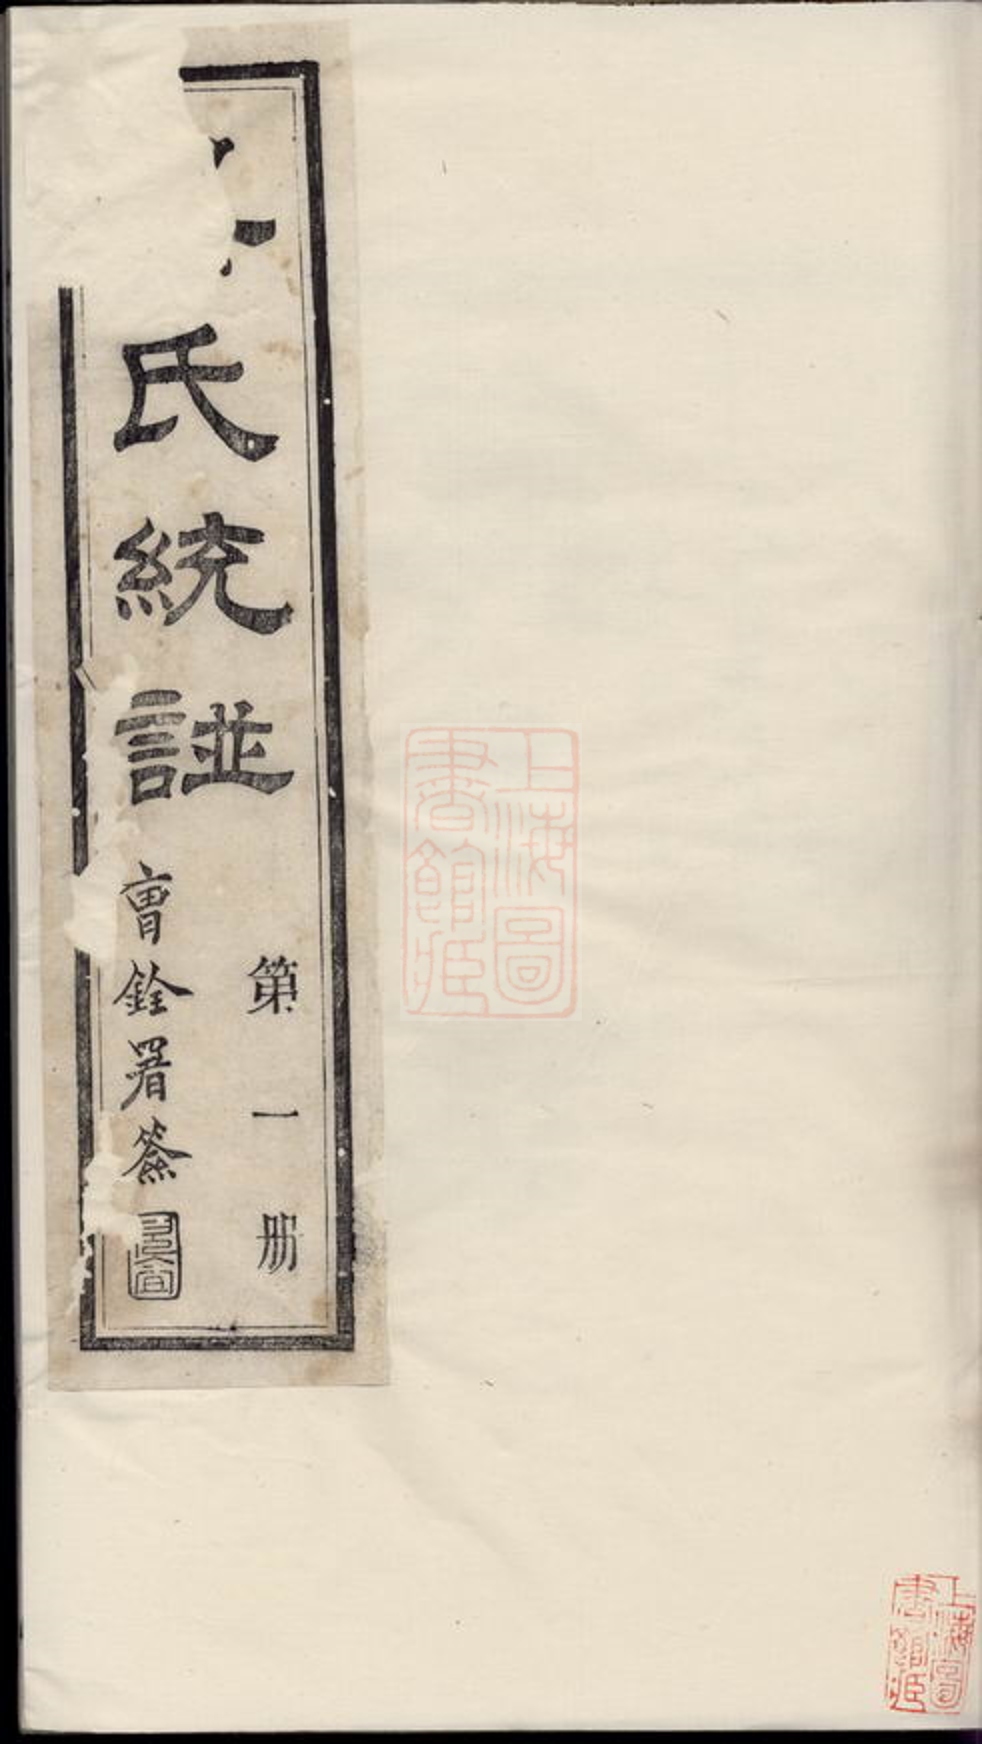 氏統譜
第一册
曺銓署簽
上海圖書館藏
上海圖書館藏